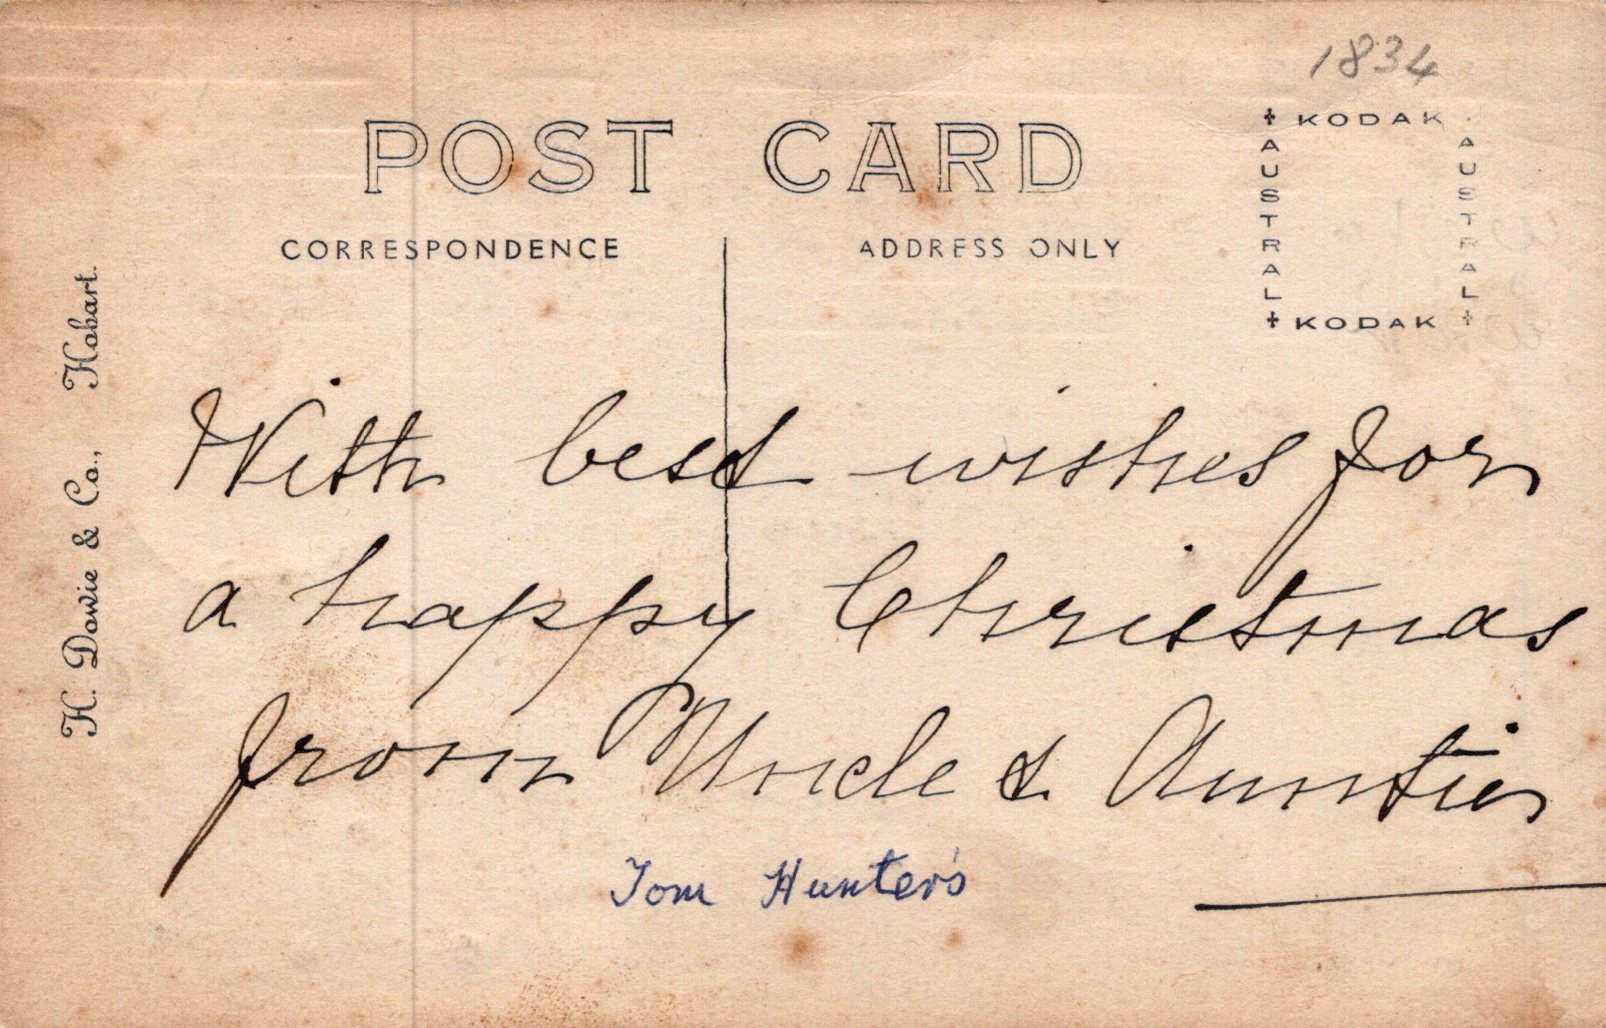 1834
POST CARD
CORRESPONDENCE
ADDRESS ONLY
KODAK
AUSTRAL
AUSTRAL
KODAK
H. Dowie & Co., Hobart.
With best wishes for
a happy Christmas
from Uncle & Auntie
Tom Hunter's